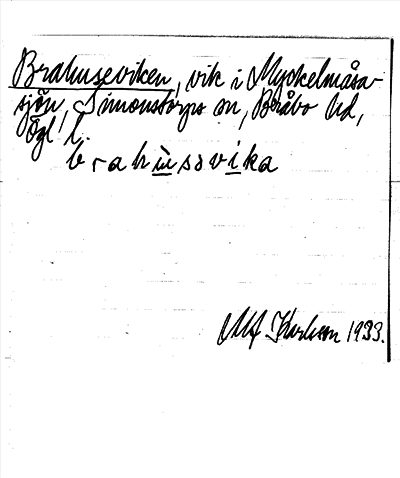 Brahuseviken, vik i Myckelmåsa-
sjön, Simonstorps sn, Bråbo hd,
Ögl l.
brahu̲ssvi̲ka
Karlsson 1933.